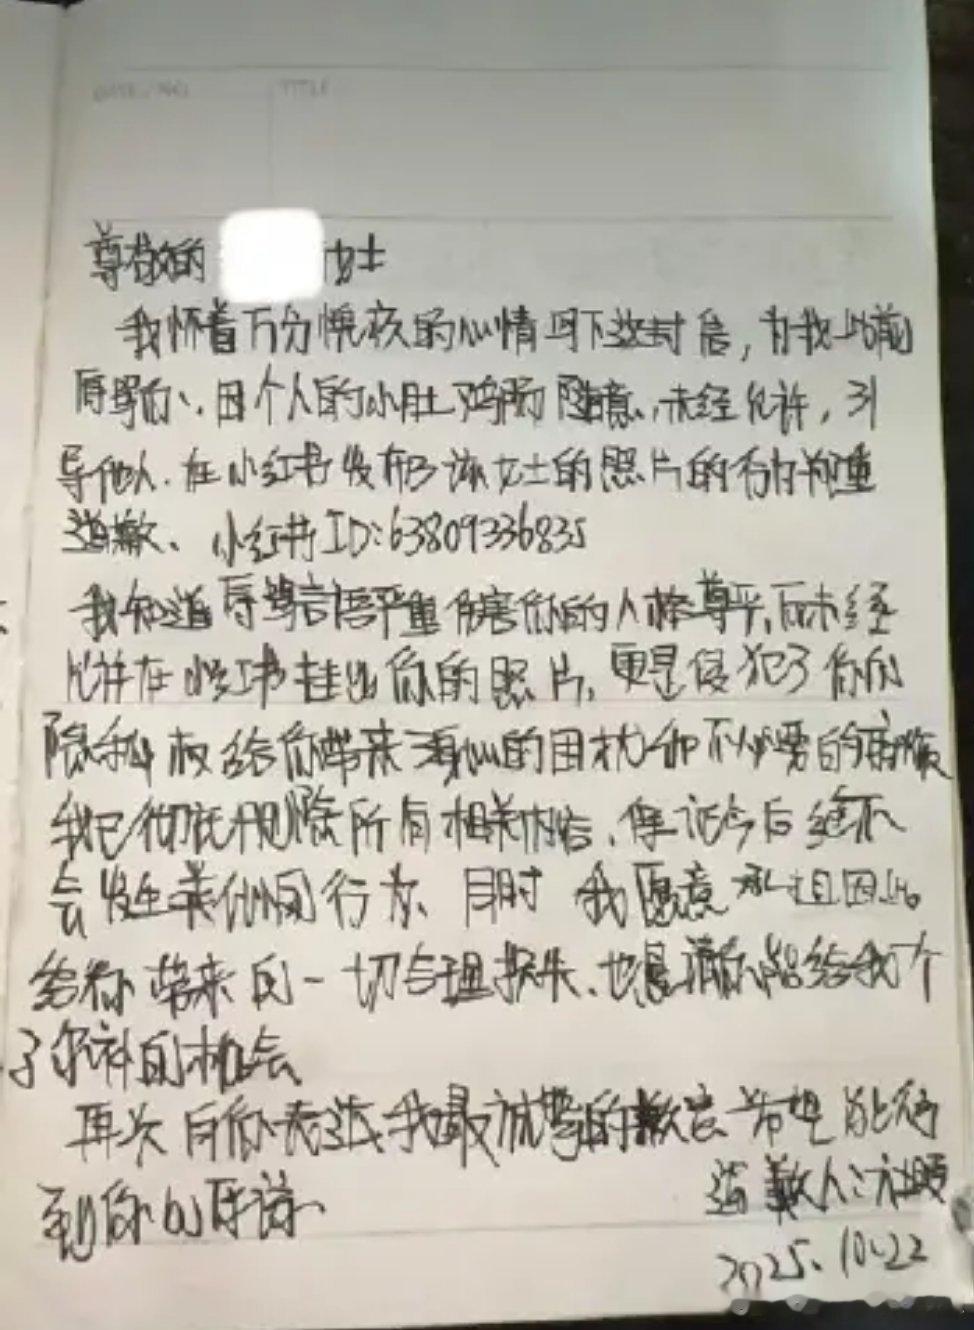 DATE / NO TITLE
尊敬的 女士
我怀着万分愧疚的心情写下这封信，为我此前
辱骂你、因个人的小肚鸡肠随意、未经允许，引
导他人、在小红书发布了该女士的照片的行为郑重
道歉、小红书ID:63809336835
我知道辱骂言语严重伤害你的人格尊严，而未经
允许在小红书挂出你的照片，更是侵犯了你的
隐私权给你带来身心的困扰和不必要的麻烦
我已彻底删除所有相关内容、保证今后绝不
会发生类似同行为、同时我愿意承担因此
给你带来的一切合理损失、也恳请你能给我个
弥补的机会
再次向你表达我最诚挚的歉意希望能得
到你的原谅
道歉人:
2025.10.22